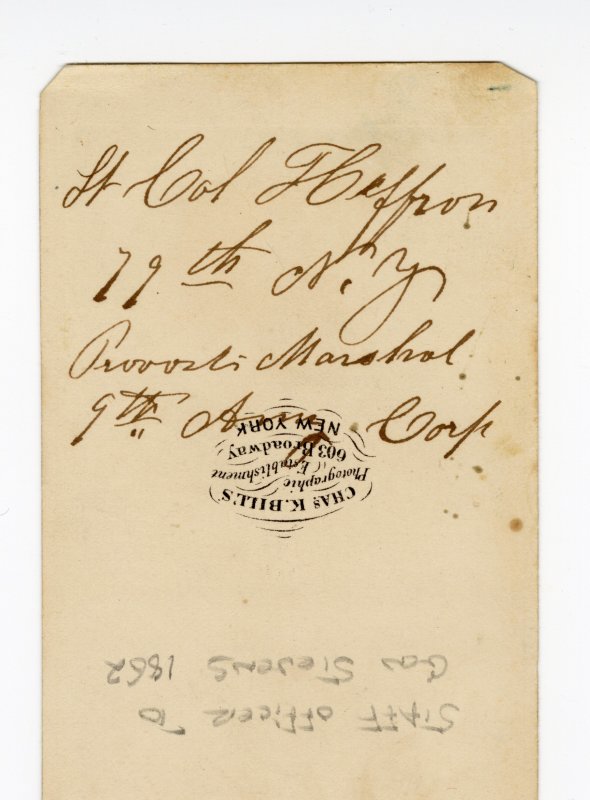 Lt Col Heffron
79th N.Y
Provost Marshal
9th Army Corp
CHAS K. BILL'S
Photographic
Establishment
603 Broadway
NEW YORK
STAFF OFFICER TO
Gen STEVENS 1862